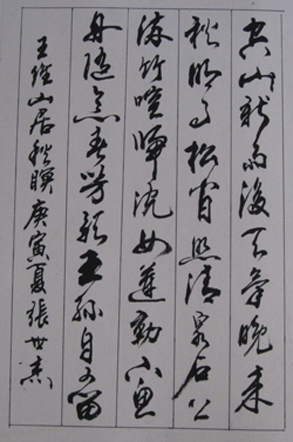 空山新雨後天氣晚來
秋明月松間照清泉石上
流竹喧歸浣女蓮動下漁
舟隨意春芳歇王孫自可留
王維山居秋暝庚寅夏張世杰